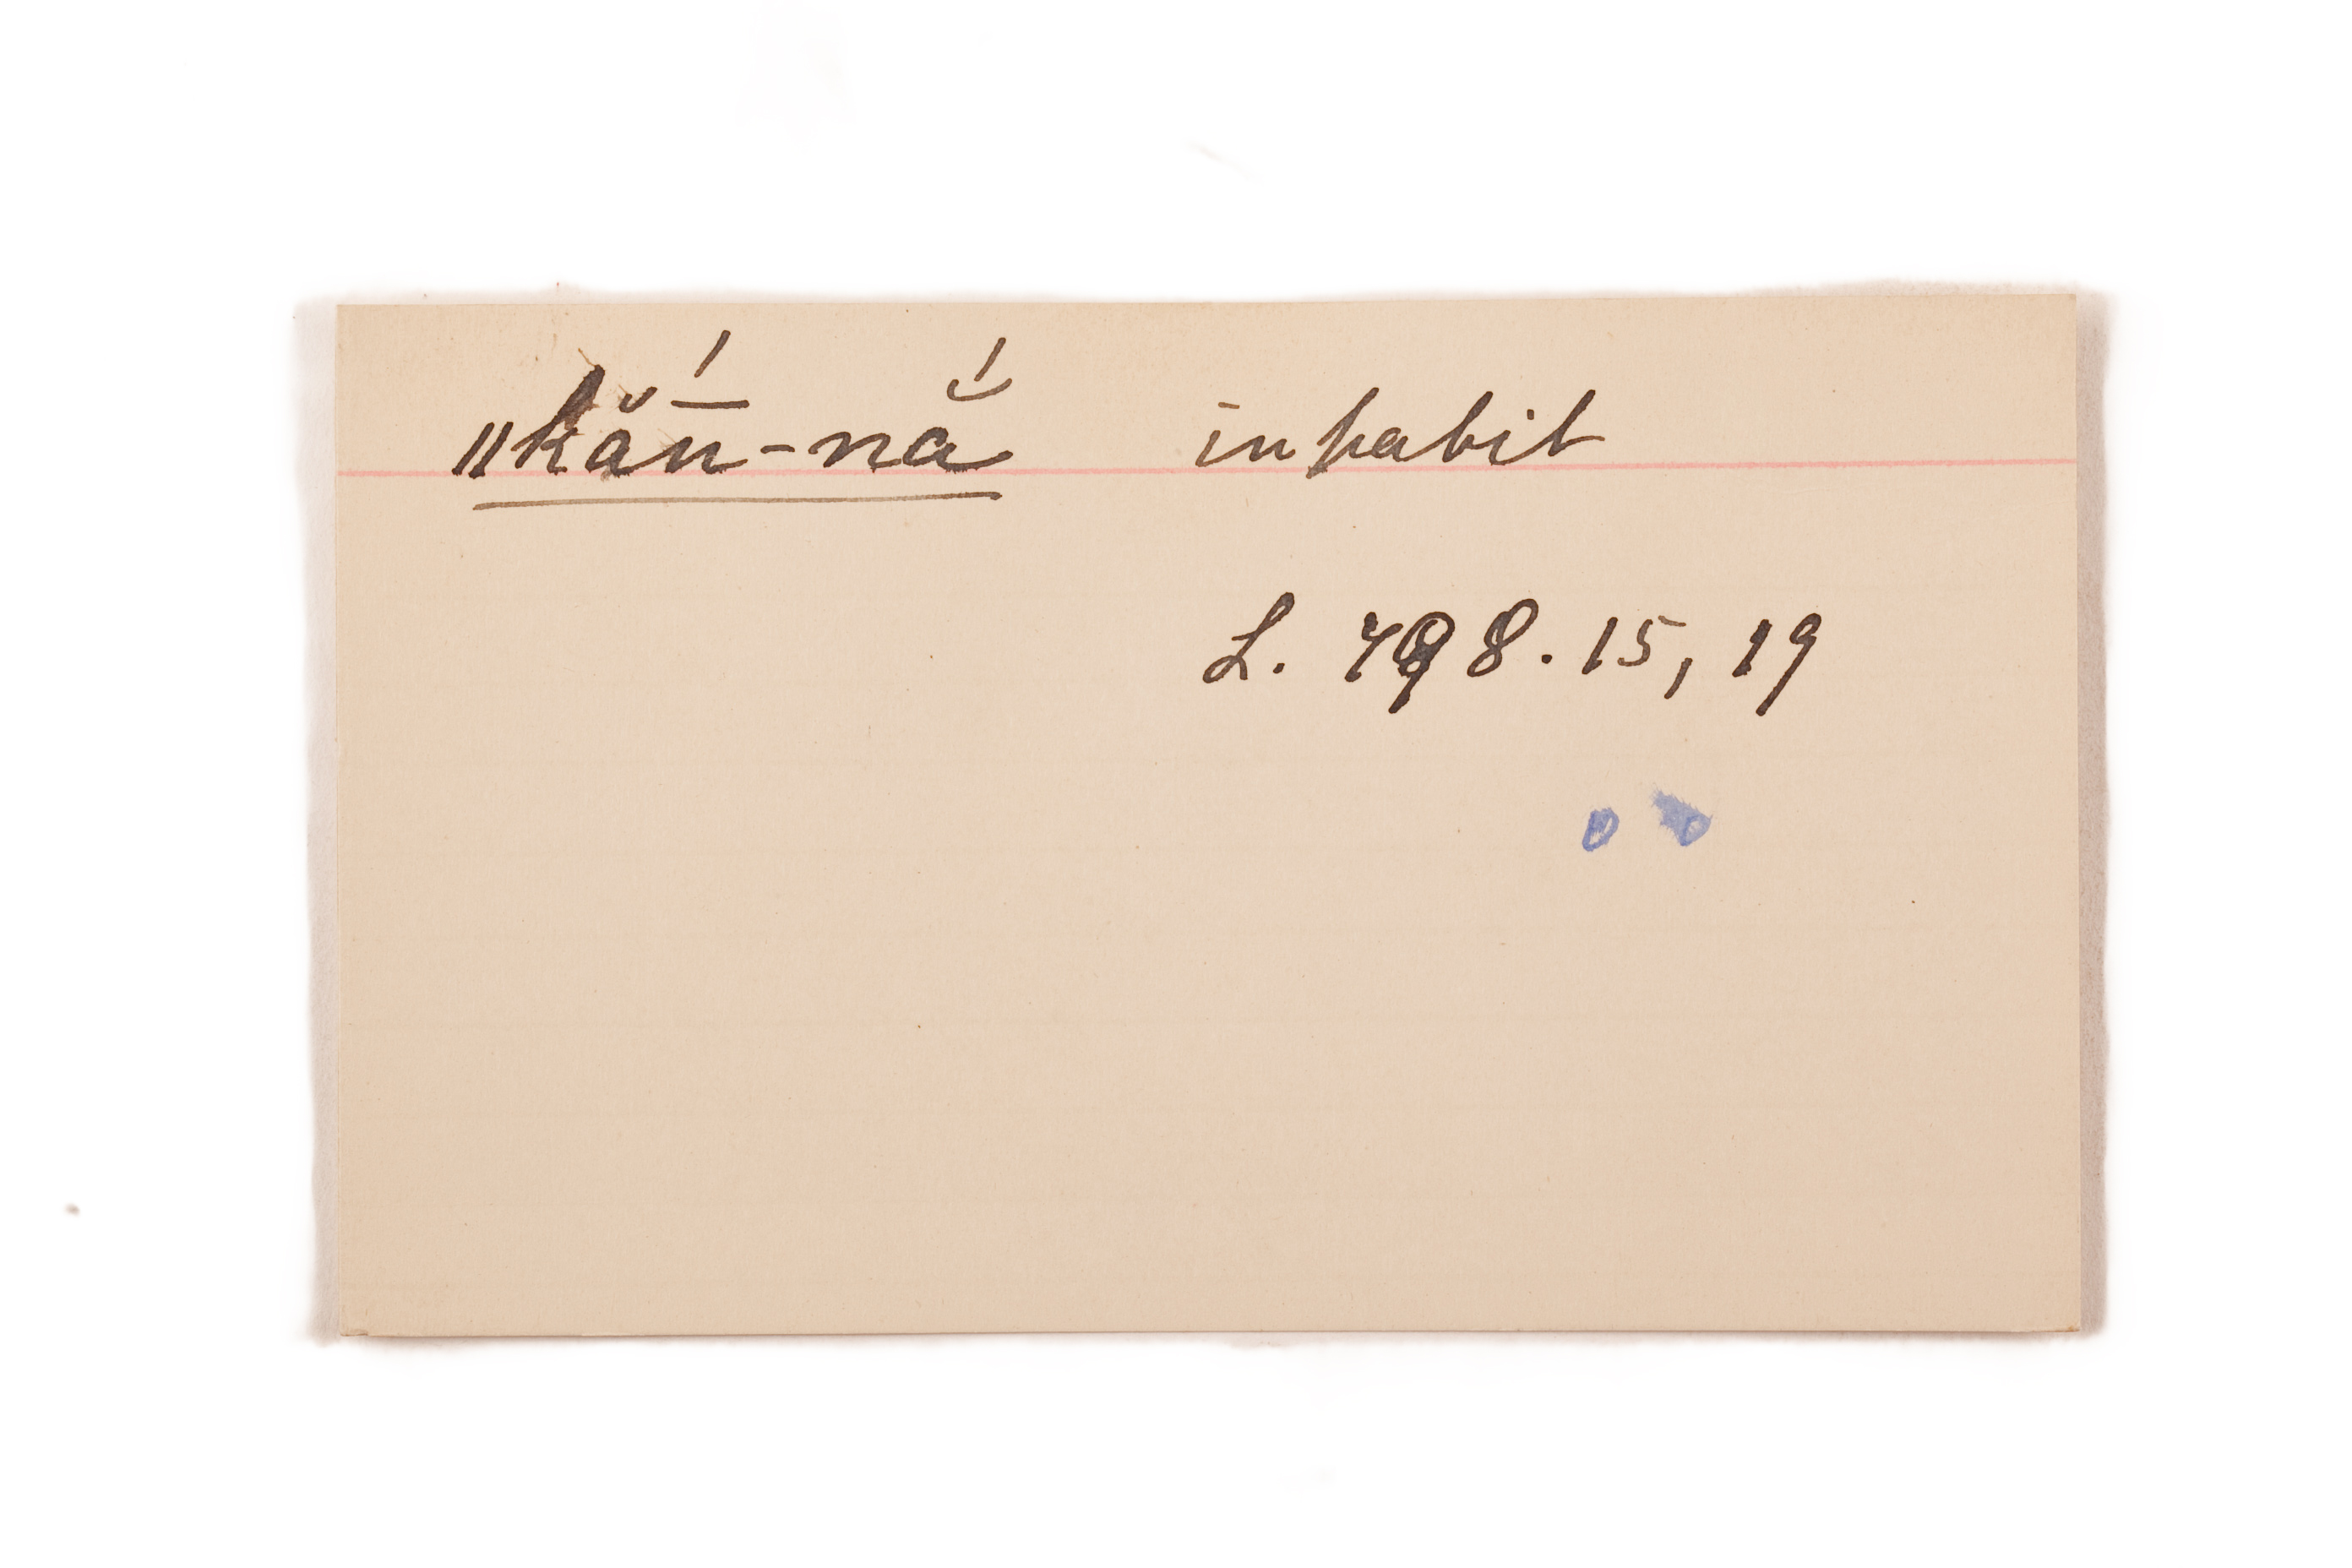 ǁkăn̄́-nắ inhabit
L. 798. 15, 19